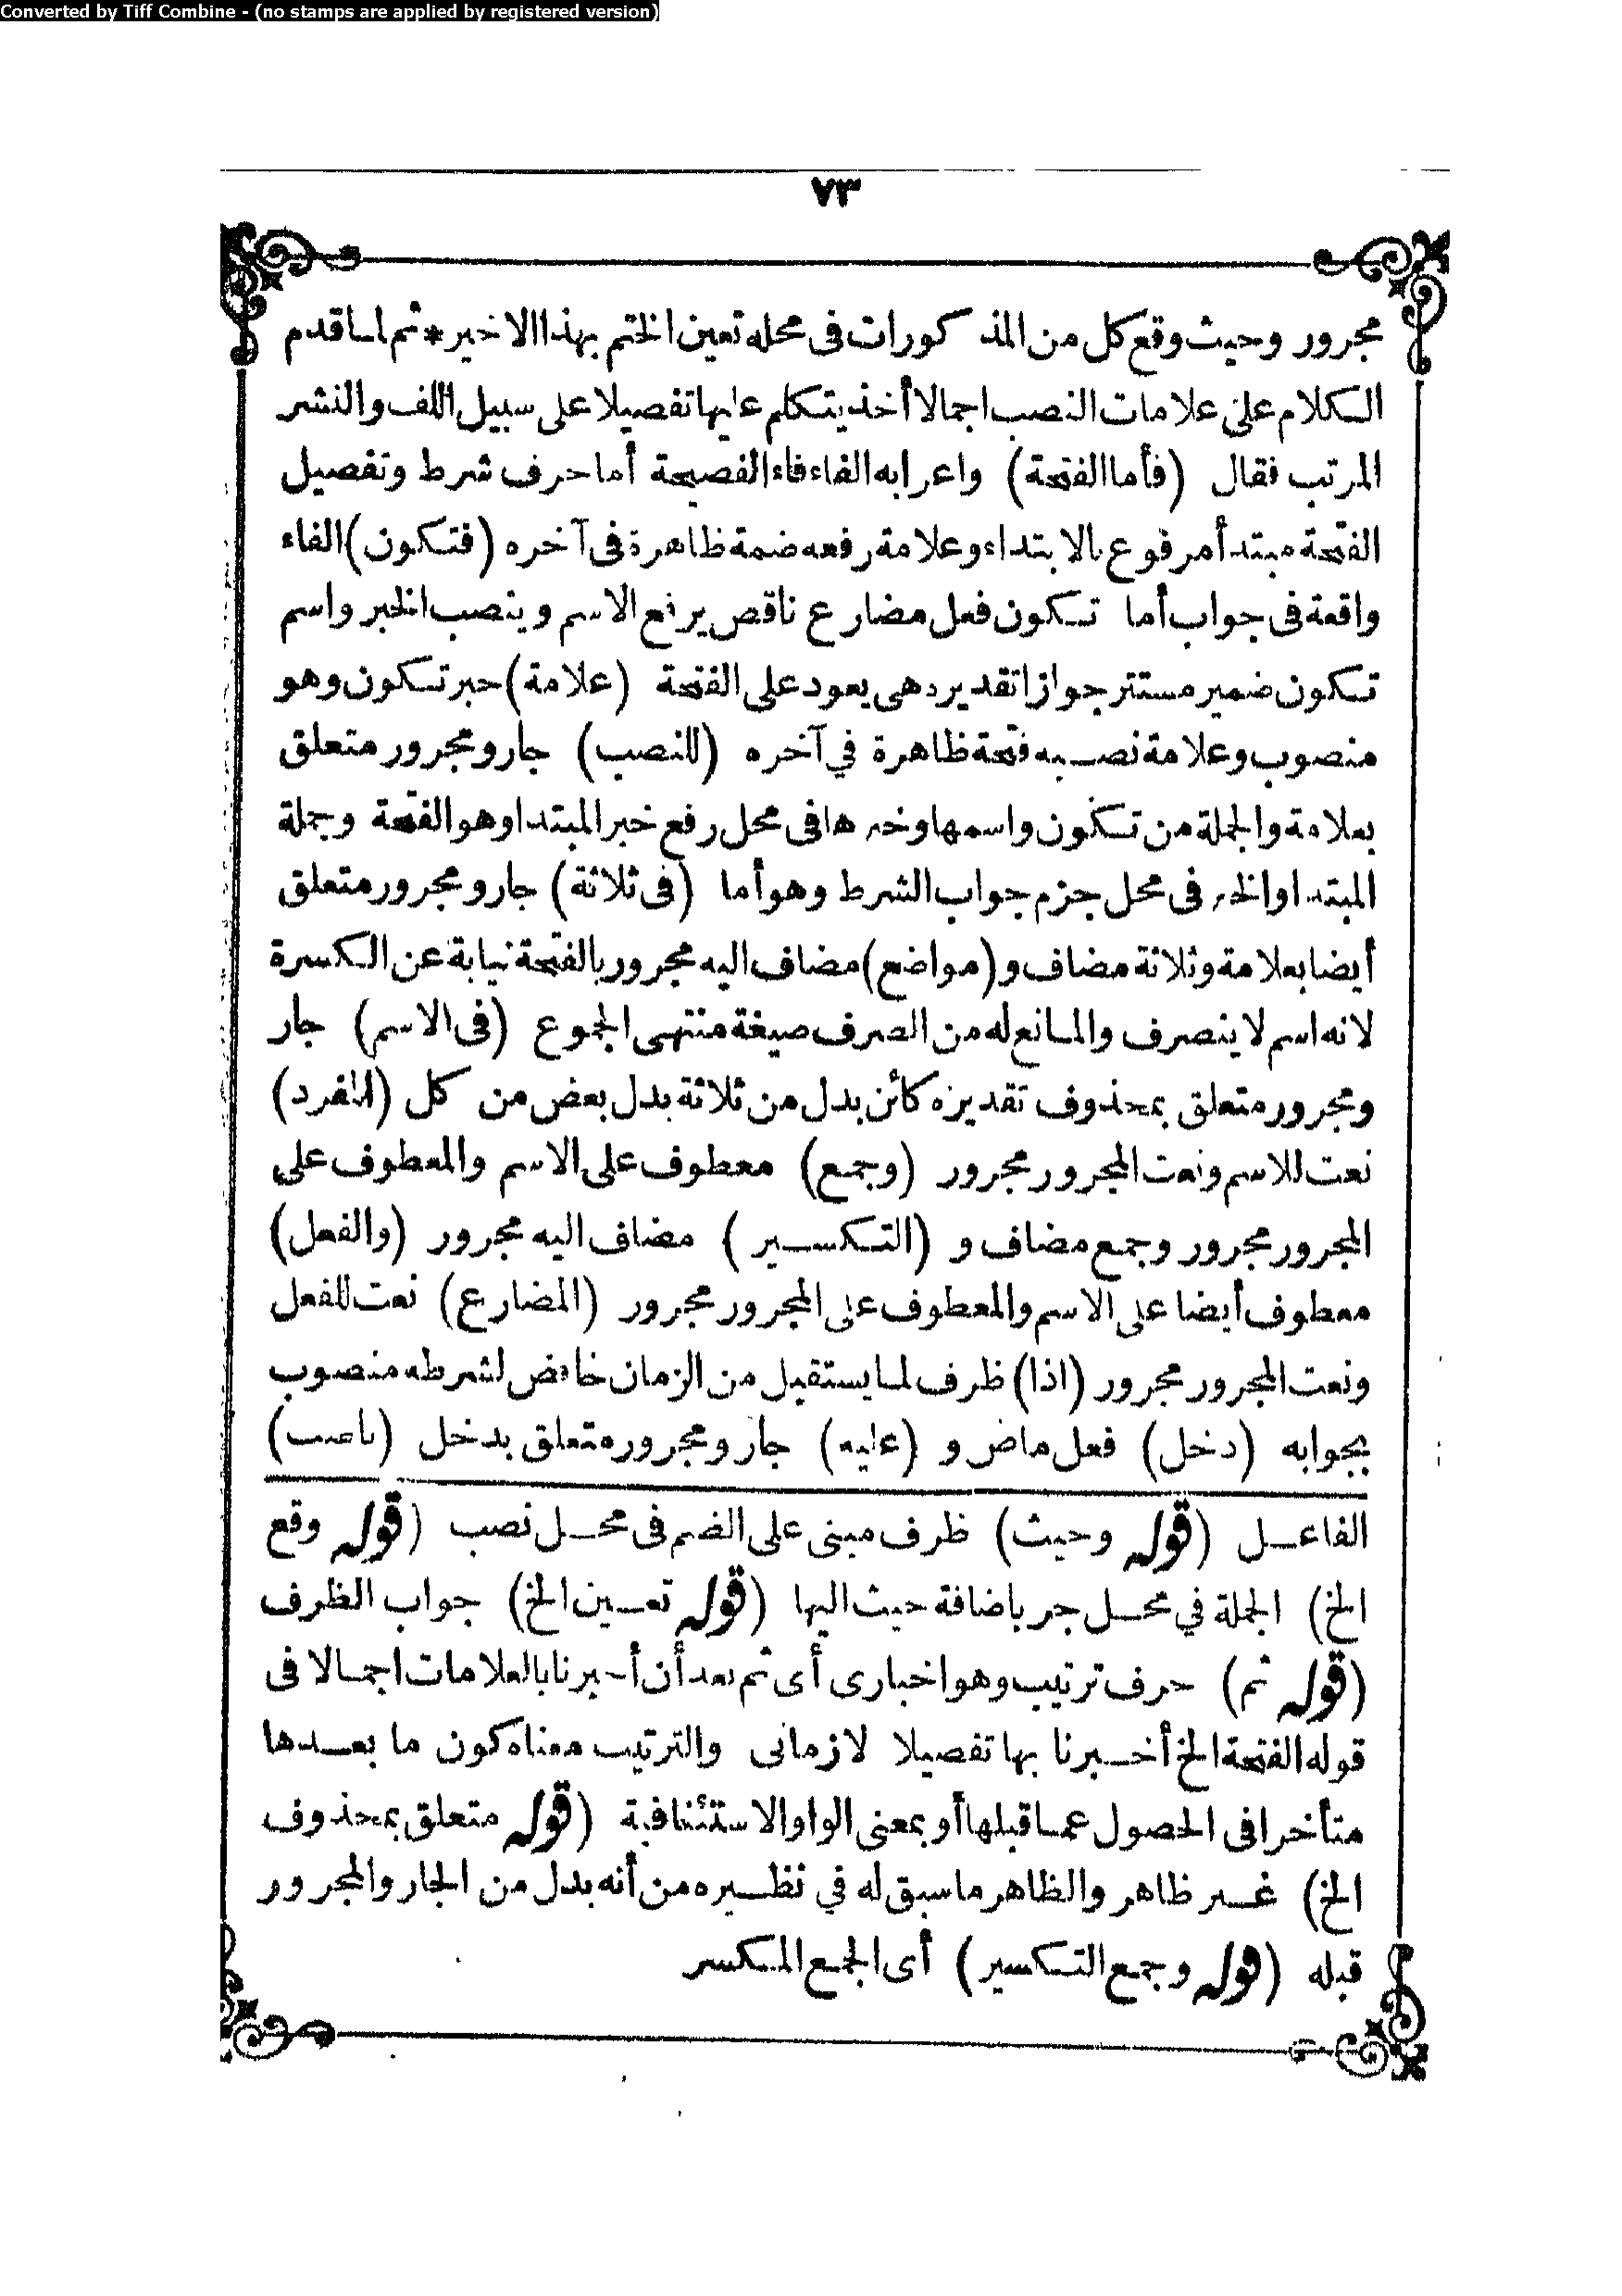 Converted by Tiff Combine - (no stamps are applied by registered version)
٧٣
مجرور وحيث وقع كل من المذكورات فى محله تعين الختم بهذا الاخير * ثم لما قدم
الكلام على علامات النصب اجمالا أخذ يتكلم عليها تفصيلا على سبيل اللف والنشر
المرتب فقال (فأما الفتحة) واعرابه الفاء فاء الفصيحة أما حرف شرط وتفصيل
الفتحة مبتدأ مرفوع بالابتداء وعلامة رفعه ضمة ظاهرة فى آخره (فتكون) الفاء
واقعة فى جواب أما تكون فعل مضارع ناقص يرفع الاسم وينصب الخبر واسم
تكون ضمير مستتر جوازا تقديره هى يعود على الفتحة (علامة) خبر تكون وهو
منصوب وعلامة نصبه فتحة ظاهرة في آخره (للنصب) جار ومجرور متعلق
بعلامة والجملة من تكون واسمها وخبرها فى محل رفع خبر المبتدا وهو الفتحة وجملة
المبتدا والخبر فى محل جزم جواب الشرط وهو أما (فى ثلاثة) جار ومجرور متعلق
أيضا بعلامة وثلاثة مضاف و (مواضع) مضاف اليه مجرور بالفتحة نيابة عن الكسرة
لانه اسم لا ينصرف والمانع له من الصرف صيغة منتهى الجموع (فى الاسم) جار
ومجرور متعلق بمحذوف تقديره كائن بدل من ثلاثة بدل بعض من كل (المفرد)
نعت للاسم ونعت المجرور مجرور (وجمع) معطوف على الاسم والمعطوف على
المجرور مجرور وجمع مضاف و (التكسير) مضاف اليه مجرور (والفعل)
معطوف أيضا على الاسم والمعطوف على المجرور مجرور (المضارع) نعت للفعل
ونعت المجرور مجرور (اذا) ظرف لما يستقبل من الزمان خافض لشرطه منصوب
بجوابه (دخل) فعل ماض و (عليه) جار ومجرور متعلق بدخل (ناصب)
الفاعل (قوله وحيث) ظرف مبنى على الضم فى محل نصب (قوله وقع
الخ) الجملة في محل جر باضافة حيث اليها (قوله تعين الخ) جواب الظرف
(قوله ثم) حرف ترتيب وهو اخبارى أى ثم بعد أن أخبرنا بالعلامات اجمالا فى
قوله الفتحة الخ أخبرنا بها تفصيلا لا زمانى والترتيب معناه كون ما بعدها
متأخرا فى الحصول عما قبلها أو بمعنى الواو الاستئنافية (قوله متعلق بمحذوف
الخ) غير ظاهر والظاهر ما سبق له في نظيره من أنه بدل من الجار والمجرور
قبله (قوله وجمع التكسير) أى الجمع المكسر